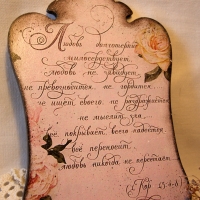 Любовь долготерпит
милосердствует
любовь не завидует
не превозносится, не гордится
не ищет своего, не раздражается
не мыслит зла
все покрывает, всего надеется
всё переносит
любовь никогда не перестаёт
(1 Кор. 13:4-8)